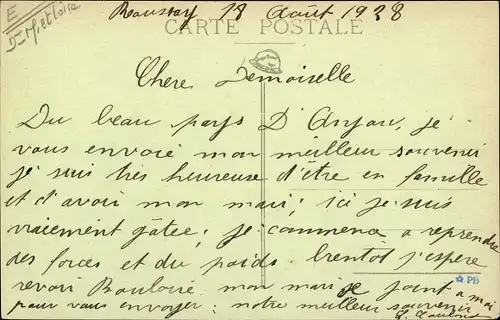 E
Dt M et Loire
Roussay 18 Août 1928
CARTE POSTALE
Chere Demoiselle
Du beau pays D'Anjou, je
vous envoie mon meilleur souvenir
je suis très heureuse d'être en famille
et d'avoir mon mari; ici je suis
vraiement gâtée; je commence a reprendre
des forces et du poids. bientôt j'espère
revoir Bouloire mon mari se joint a moi
pour vous envoyer: notre meilleur souvenir
PB